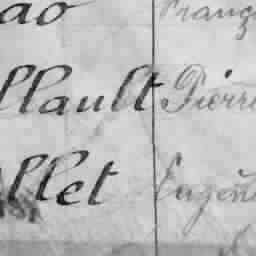 ao Franç
llault Pierre
llet Eugèn